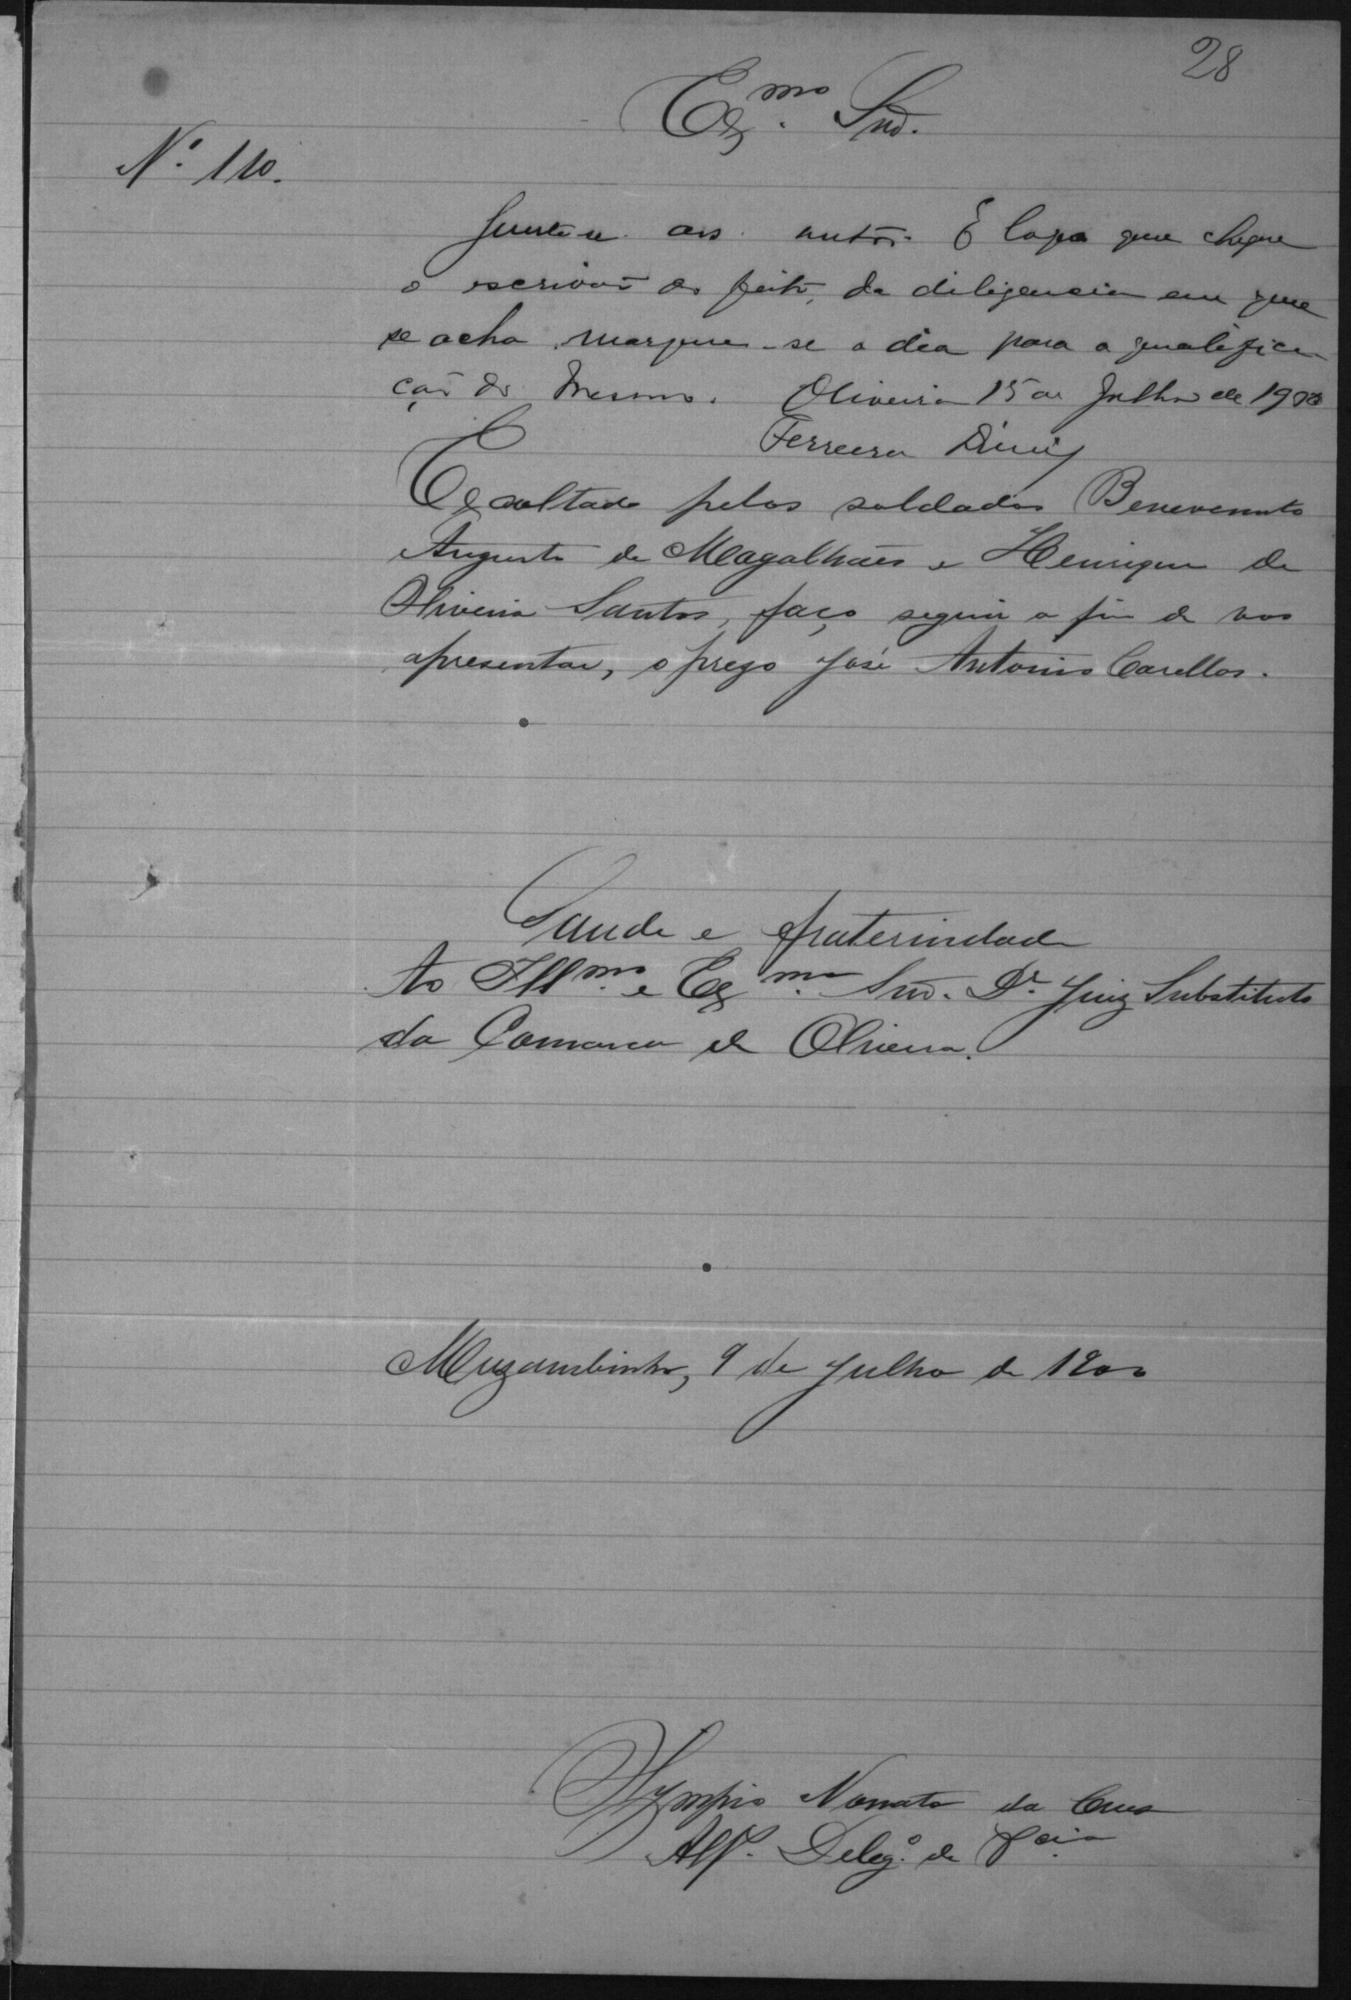 28
Exmo. Snr.
N.º 110.
Junte-se aos autos. E logo que chegue
o escrivão do feito, da diligencia em que
se acha, marque-se o dia para a qualifica-
ção do mesmo. Oliveira 15 de Julho de 1900
Ferreira Diniz
Escoltado pelos soldados Benevenuto
Augusto de Magalhães e Henrique de
Oliveira Santos, faço seguir a fim de vos
apresentar, o prezo José Antonio Carellos.
Saude e fraternidade
Ao Illmo. e Exmo. Snr. Dr. Juiz Substituto
da Comarca de Oliveira.
Muzambinho, 9 de Julho de 1900
Olympio Nonato da Cruz
Alfs. Delegº. de Pcia.